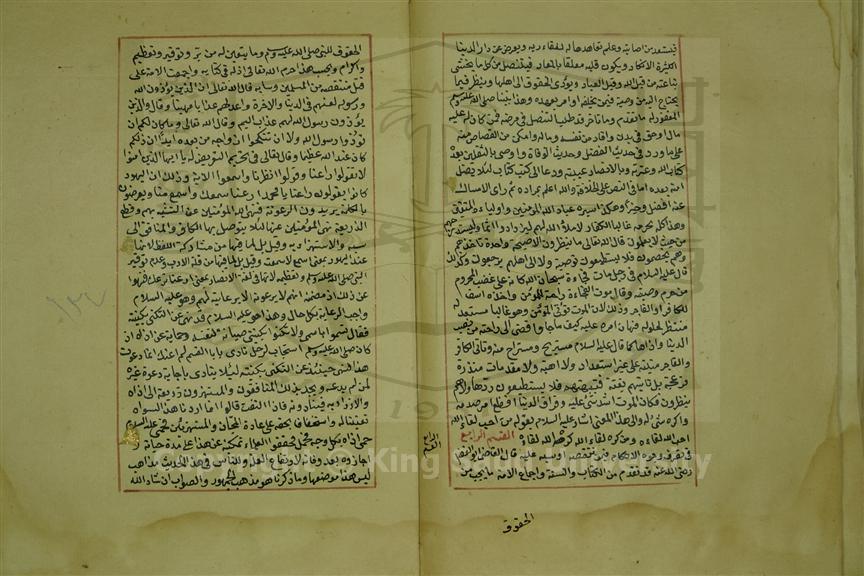 فيستعد من اصابته وعلم تعاهدها له للقاء ربه ويعرض عن دار الدنيا
الكثيرة الانكاد ويكون قلبه معلقا بالمعاد فيتنصل من كل ما يخشى
تباعته من قبل الله وقبل العباد ويؤدي الحقوق الى اهلها وينظر فيما
يحتاج اليه من وصية فيمن يخلفه او امر يعهده وهذا نبينا صلى الله عليه وسلم
المغفور له ما تقدم وما تاخر قد طلب التنصل في مرضه ممن كان له عليه
مال او حق في بدن واقاد من نفسه وماله وامكن من القصاص منه
على ما ورد في حديث الفضل وحديث الوفاة واوصى بالثقلين بعده
كتاب الله وعترته وبالانصار عيبته ودعا الى كتب كتاب لئلا يضل
امته بعده اما في النص على الخلافة والله اعلم بمراده ثم راى الامساك
عنه افضل وخيرا وهكذا سيرة عباد الله المؤمنين واوليائه المتقين
وهذا كله يحرمه غالبا الكفار لاملاء الله لهم ليزدادوا اثما وليستدرجهم
من حيث لا يعلمون قال الله تعالى ما ينظرون الا صيحة واحدة تاخذهم
وهم يخصمون فلا يستطيعون توصية ولا الى اهلهم يرجعون وكذلك
قال عليه السلام في رجل مات فجاءة سبحان الله كانه على غضب المحروم
من حرم وصيته وقال موت الفجاءة راحة للمؤمن واخذة اسف
للكافر او الفاجر وذلك لان الموت ياتي المؤمن وهو غالبا مستعد له
منتظر لحلوله فهان امره عليه كيف ما جاء وافضى الى راحته من نصب
الدنيا واذاها كما قال عليه السلام مستريح ومستراح منه وتاتي الكافر
والفاجر منيته على غير استعداد ولا اهبة ولا مقدمات منذرة
مزعجة بل تاتيهم بغتة فتبهتهم فلا يستطيعون ردها ولا هم
ينظرون فكان الموت اشد شئ عليه وفراق الدنيا افظع امر صدمه
واكره شئ له والى هذا المعنى اشار عليه السلام بقوله من احب لقاء الله
احب الله لقاءه ومن كره لقاء الله كره الله لقاءه القسم الرابع
في تصرف وجوه الاحكام فيمن تنقصه او سبه عليه قال القاضي ابو الفضل
رضي الله عنه قد تقدم من الكتاب والسنة واجماع الامة ما يجب من
الحقوق
القسم الرابع
الحقوق للنبي صلى الله عليه وسلم وما يتعين له من بر وتوقير وتعظيم
واكرام وبحسب هذا حرم الله تعالى اذاه في كتابه واجمعت الامة على
قتل متنقصه من المسلمين وسابه قال الله تعالى ان الذين يؤذون الله
ورسوله لعنهم في الدنيا والاخرة واعد لهم عذابا مهينا وقال والذين
يؤذون رسول الله لهم عذاب اليم وقال الله تعالى وما كان لكم ان
تؤذوا رسول الله ولا ان تنكحوا ازواجه من بعده ابدا ان ذلكم
كان عند الله عظيما وقال تعالى في تحريم التعريض له يا ايها الذين امنوا
لا تقولوا راعنا وقولوا انظرنا واسمعوا الاية وذلك ان اليهود
كانوا يقولون راعنا يا محمد ارعنا سمعك واسمع منا ويعرضون
بالكلمة يريدون الرعونة فنهى الله المؤمنين عن التشبه بهم وقطع
الذريعة نهي المؤمنين عنها لئلا يتوصل بها الكافر والمنافق الى
سبه والاستهزاء به وقيل بل لما فيها من مشاركة اللفظ لانها
عند اليهود بمعنى اسمع لا سمعت وقيل بل لما فيها من قلة الادب وعدم توقير
النبي صلى الله عليه وسلم وتعظيمه لانها في لغة الانصار بمعنى ارعنا نرعك فنهوا
عن ذلك اذ مضمنه انهم لا يرعونه الا برعايته لهم وهو عليه السلام
واجب الرعاية بكل حال وهذا هو عليه السلام قد نهى عن التكني بكنيته
فقال تسموا باسمي ولا تكنوا بكنيتي صيانة لنفسه وحماية عن اذاه اذ
كان صلى الله عليه وسلم استجاب لرجل نادى يا ابا القسم فقال لم اعنك انما دعوت
هذا فنهى حينئذ عن التكني بكنيته لئلا يتاذى باجابة دعوة غيره
لمن لم يدعه ويجد بذلك المنافقون والمستهزؤن ذريعة الى اذاه
والازراء به فينادونه فاذا التفت قالوا انما اردنا هذا لسواه
تعنيتا له واستخفافا بحقه على عادة المجان والمستهزئين فحمى عليه السلام
حمى اذاه بكل وجه فحمل محققوا العلماء نهيه عن هذا على مدة حياته و
اجازوه بعد وفاته لارتفاع العلة وللناس في هذا الحديث مذاهب
ليس هذا موضعها وما ذكرناه هو مذهب الجمهور والصواب ان شاء الله
١٢٧